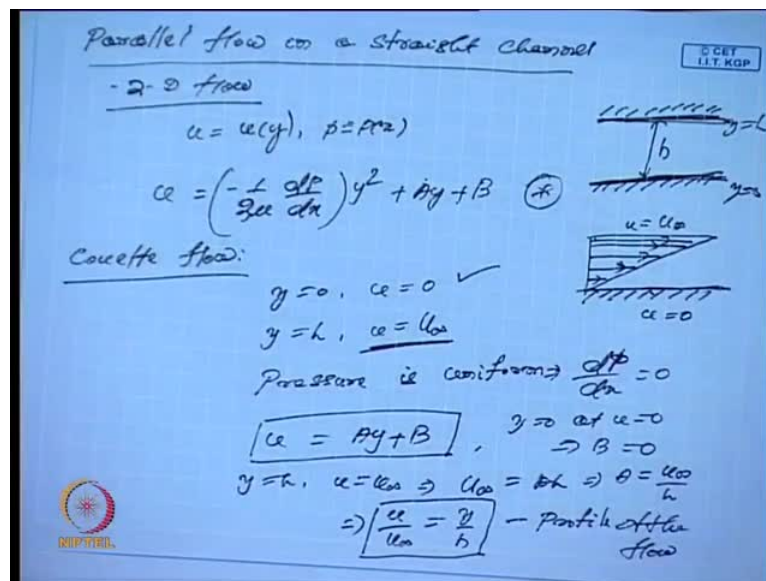 Parallel flow in a Straight Channel
© CET
I.I.T. KGP
- 2-D flow
u = u(y), p = p(x)
y=h
h
y=0
u = (-1/2μ dp/dx) y² + Ay + B (*)
u = U∞
Couette flow:
y=0, u=0 ✓
u=0
y=h, u=U∞
Pressure is uniform ⇒ dp/dx = 0
u = Ay+B, y=0 at u=0
⇒ B=0
y=h, u=U∞ ⇒ U∞ = Ah ⇒ A = U∞/h
⇒ u/U∞ = y/h - Profile of the
flow
NPTEL